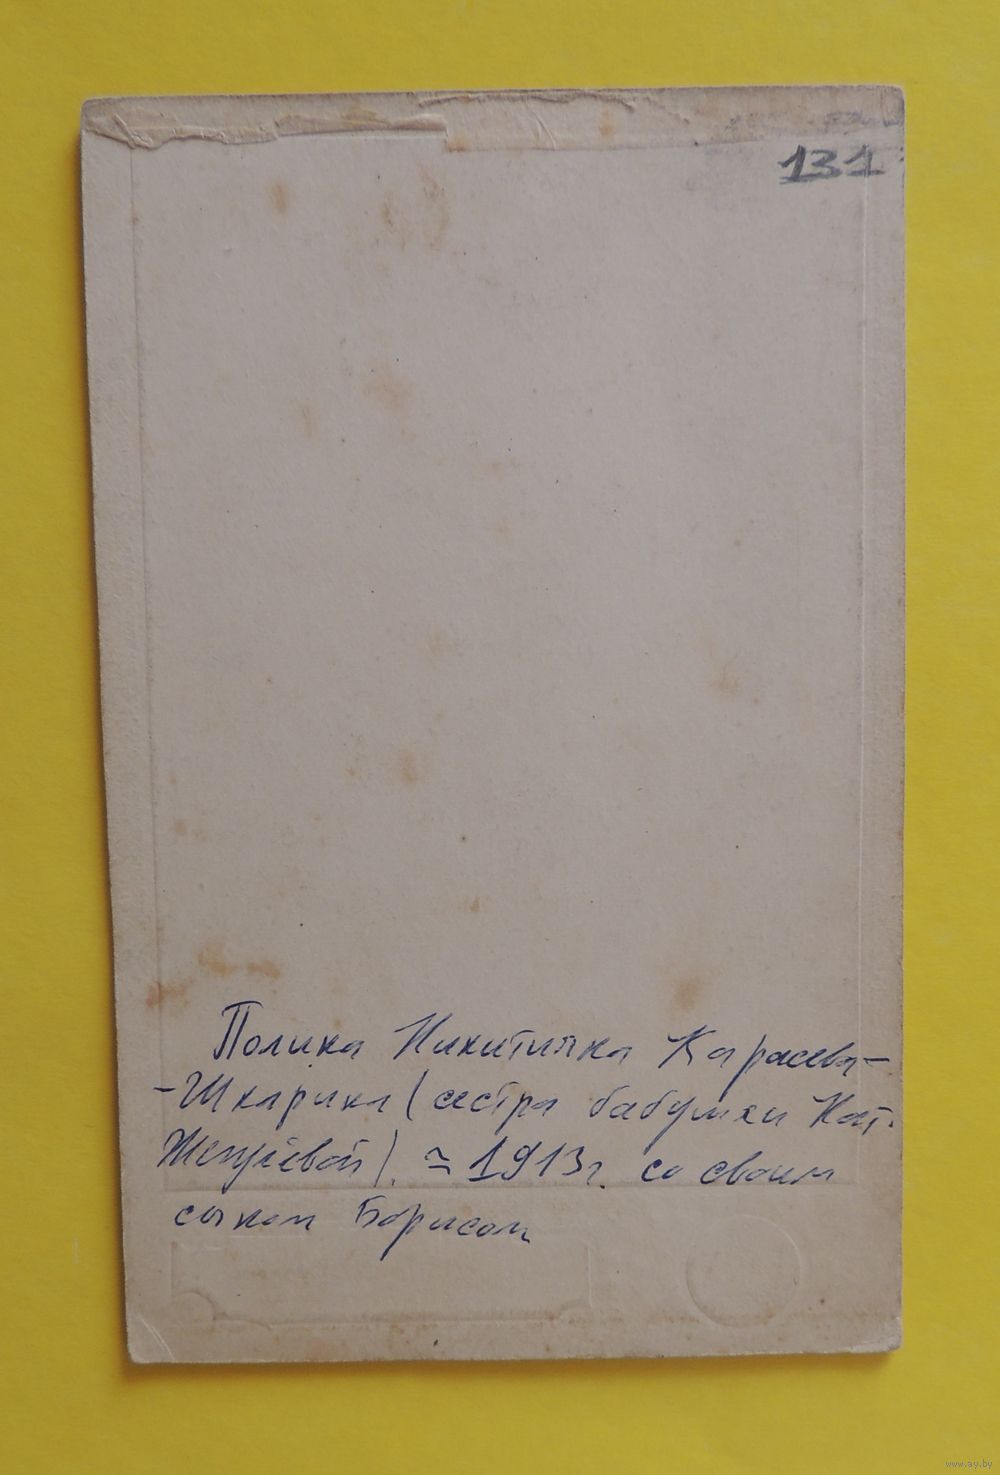 131
Полина Никитична Карасева-
-Шкарина (сестра бабушки Нат.
). ≃ 1913 г. со своим
сыном Борисом
www.ay.by